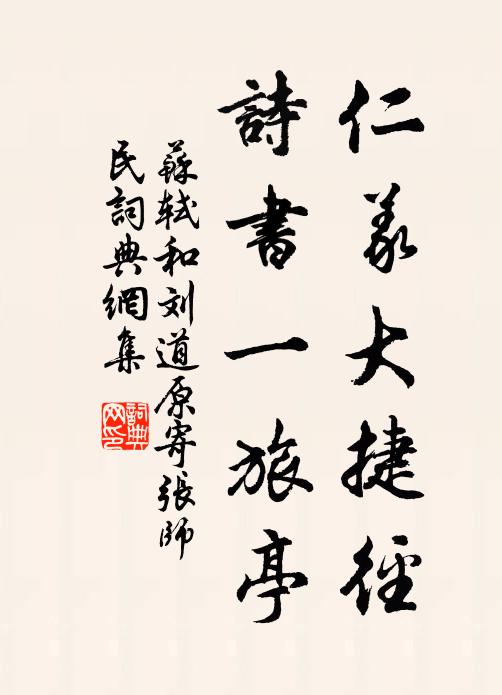 仁義大捷徑
詩書一旅亭
蘇軾和刘道原寄張師
民詞典網集
詞典
网印